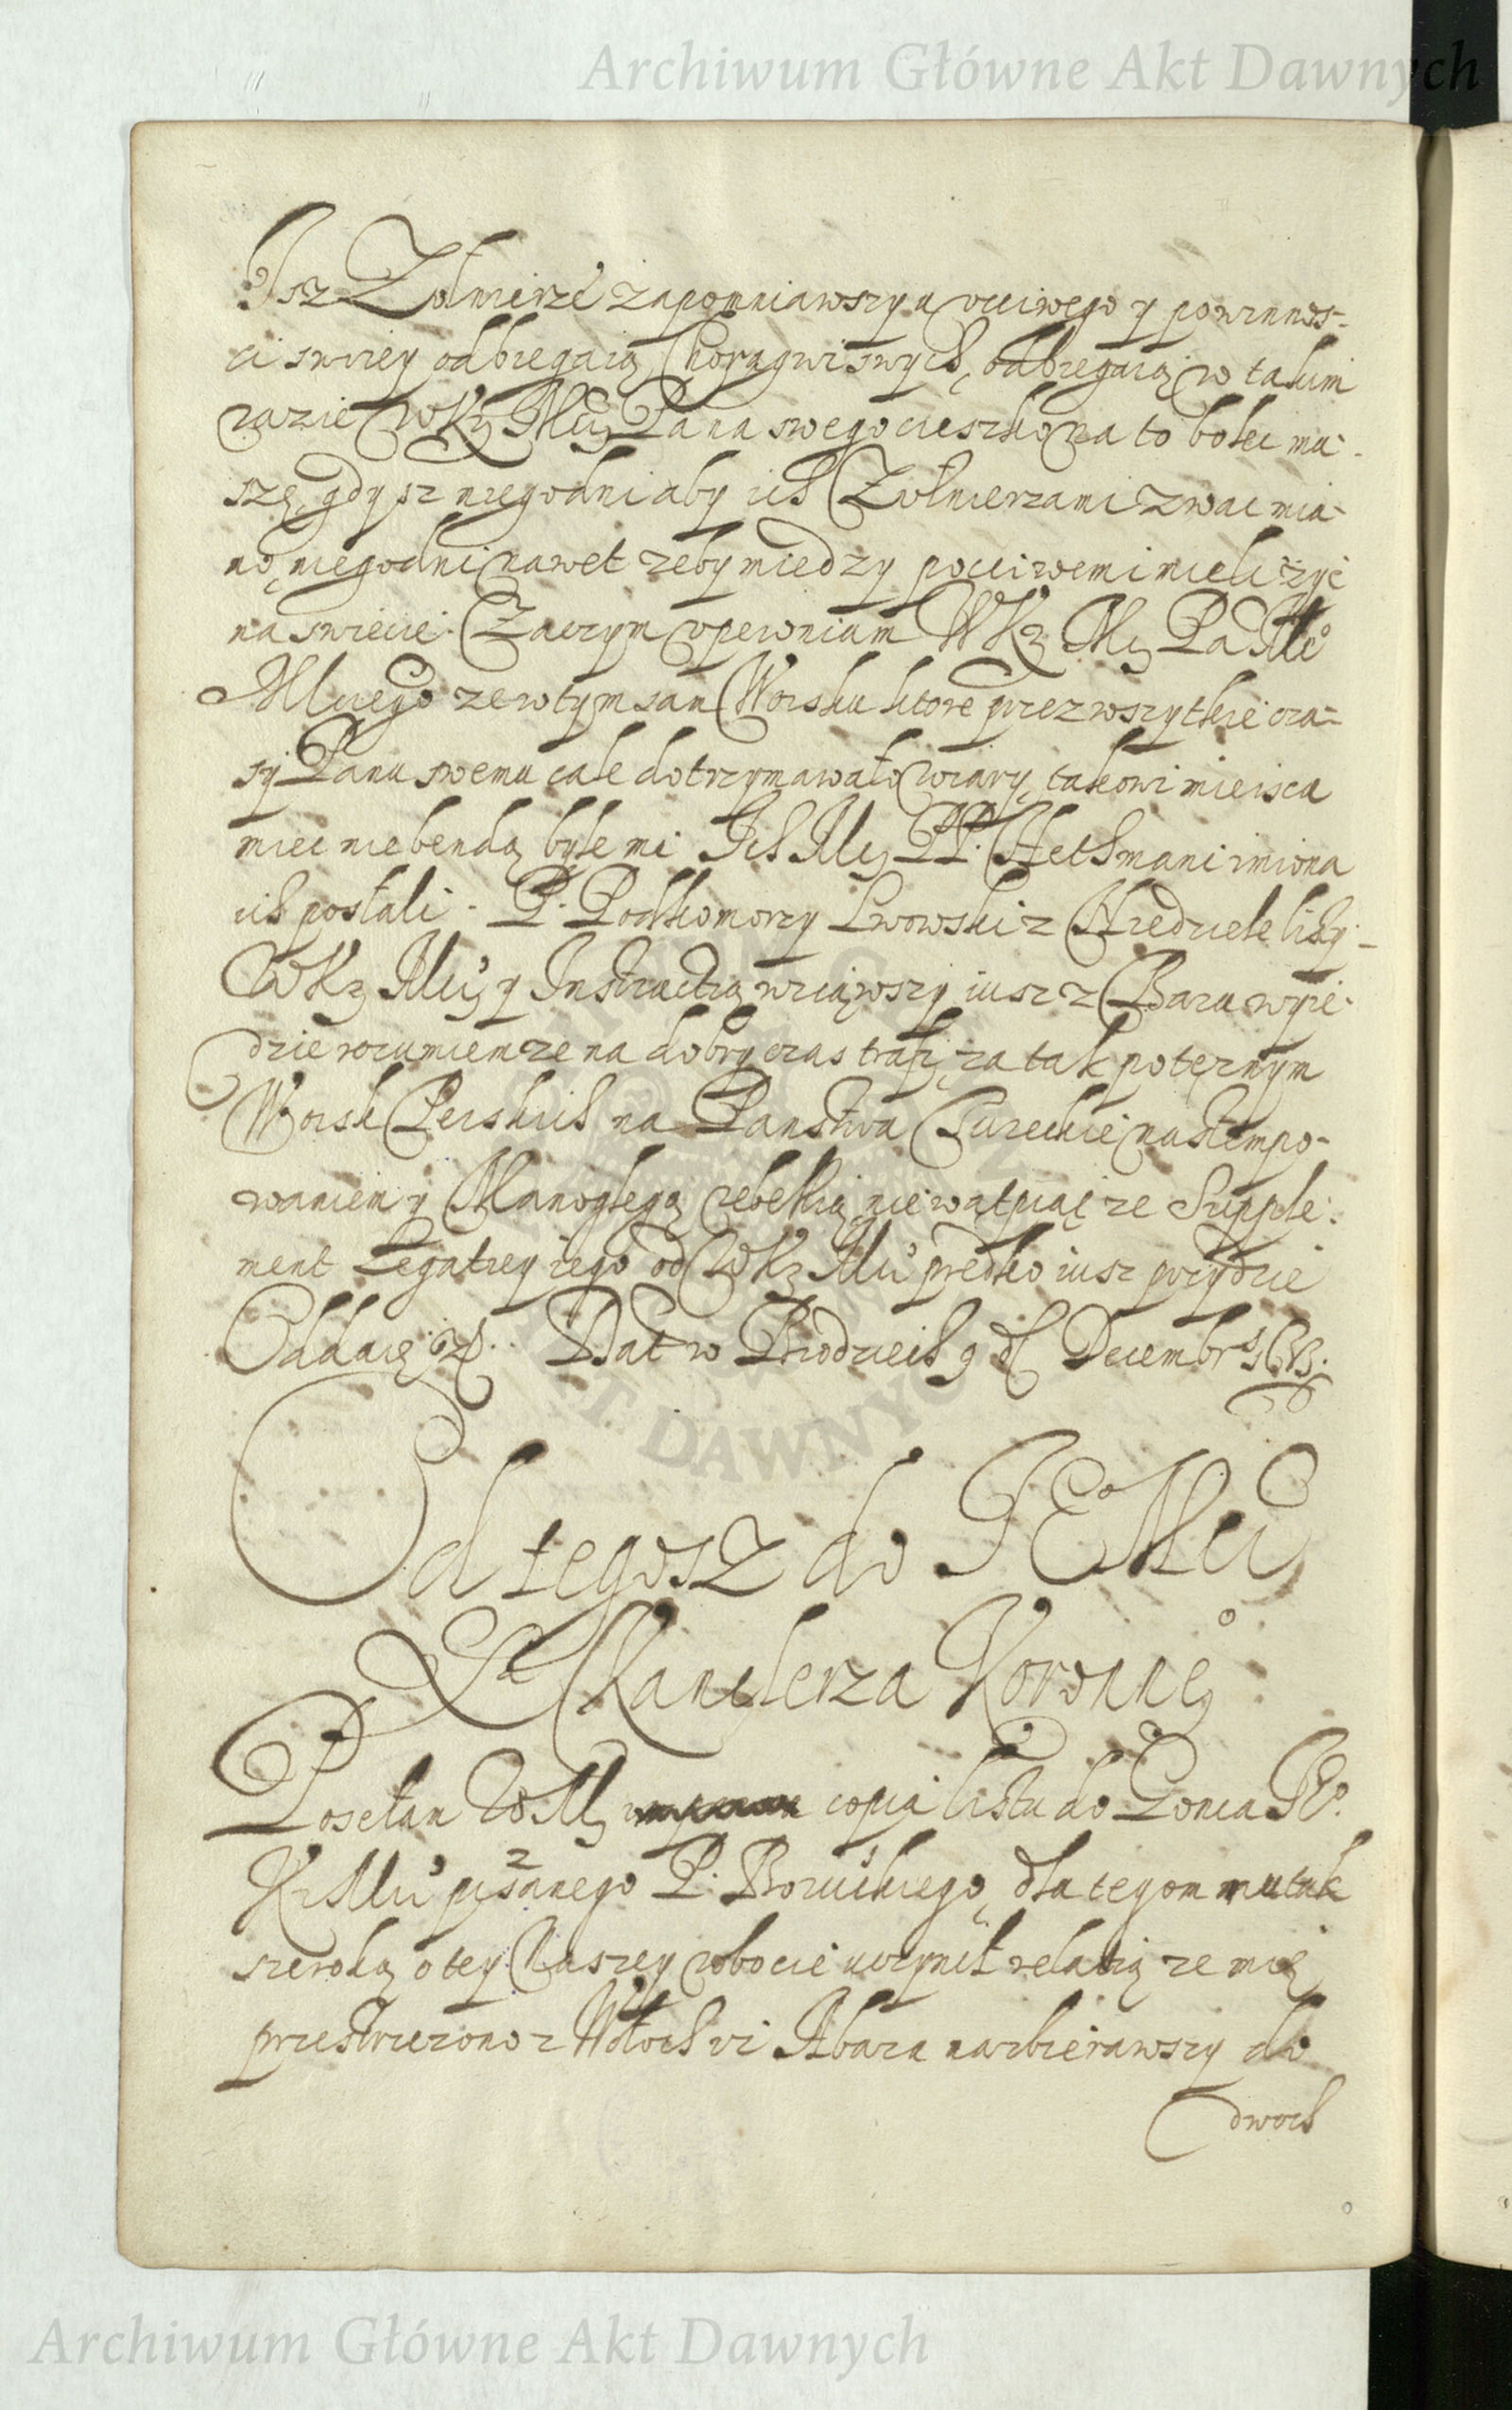 Archiwum Główne Akt Dawnych
Isz Zolnierze zapomniawszy u vcciwego y powinnos-
ci swoiey odbiegaią Chorągwi swych, odbiegaią w takim
razie WKJ Mći Pana swego cieszko na to boleć mu-
szę, gdysz niegodni aby ich Zołnierzami zwać mia-
no, niegodni nawet zeby miedzy poćciwemi mieli żyć
na swiecie. Zaczym vpewniam WKJ Mći Pa Mẽo
Mciwego ze w tym tam Woisku ktore przez wszytkie cza-
sy Panu swemu cale dotrzymawało wiary, takowi mieisca
miec niebendą byle mi Ich Mći PP. Hethmani imiona
ich posłali. P. Podkomorzy Lwowski z Niedziele listy
WKJ Mći y Instructią wziąwszy iusz z Baru wyie-
dzie rozumiem ze na dobry czas trafi, za tak potęznym
Woisk Perskich na Panstwa Tureckie nastempo-
waniem y Manoglego rebellią, nie wątpiąc ze Supple-
ment Legatiey iego od WKJ Mći prędko iusz przydzie
Oddaię ẞ. Dat w Brodziech 9 d Decembris
Od tegosz do JE Mći
Pa Kanclerza Koronneo
Posełam WMći copią listu do Zońca JE°
KJ Mći pisanego P. Boruckiego, dla tegom mu tak
szeroką o tey naszey robocie uczynił relatią ze mię
przestrzezono z Włoch iz Abaza nazbierawszy do
dwoch
Archiwum Główne Akt Dawnych